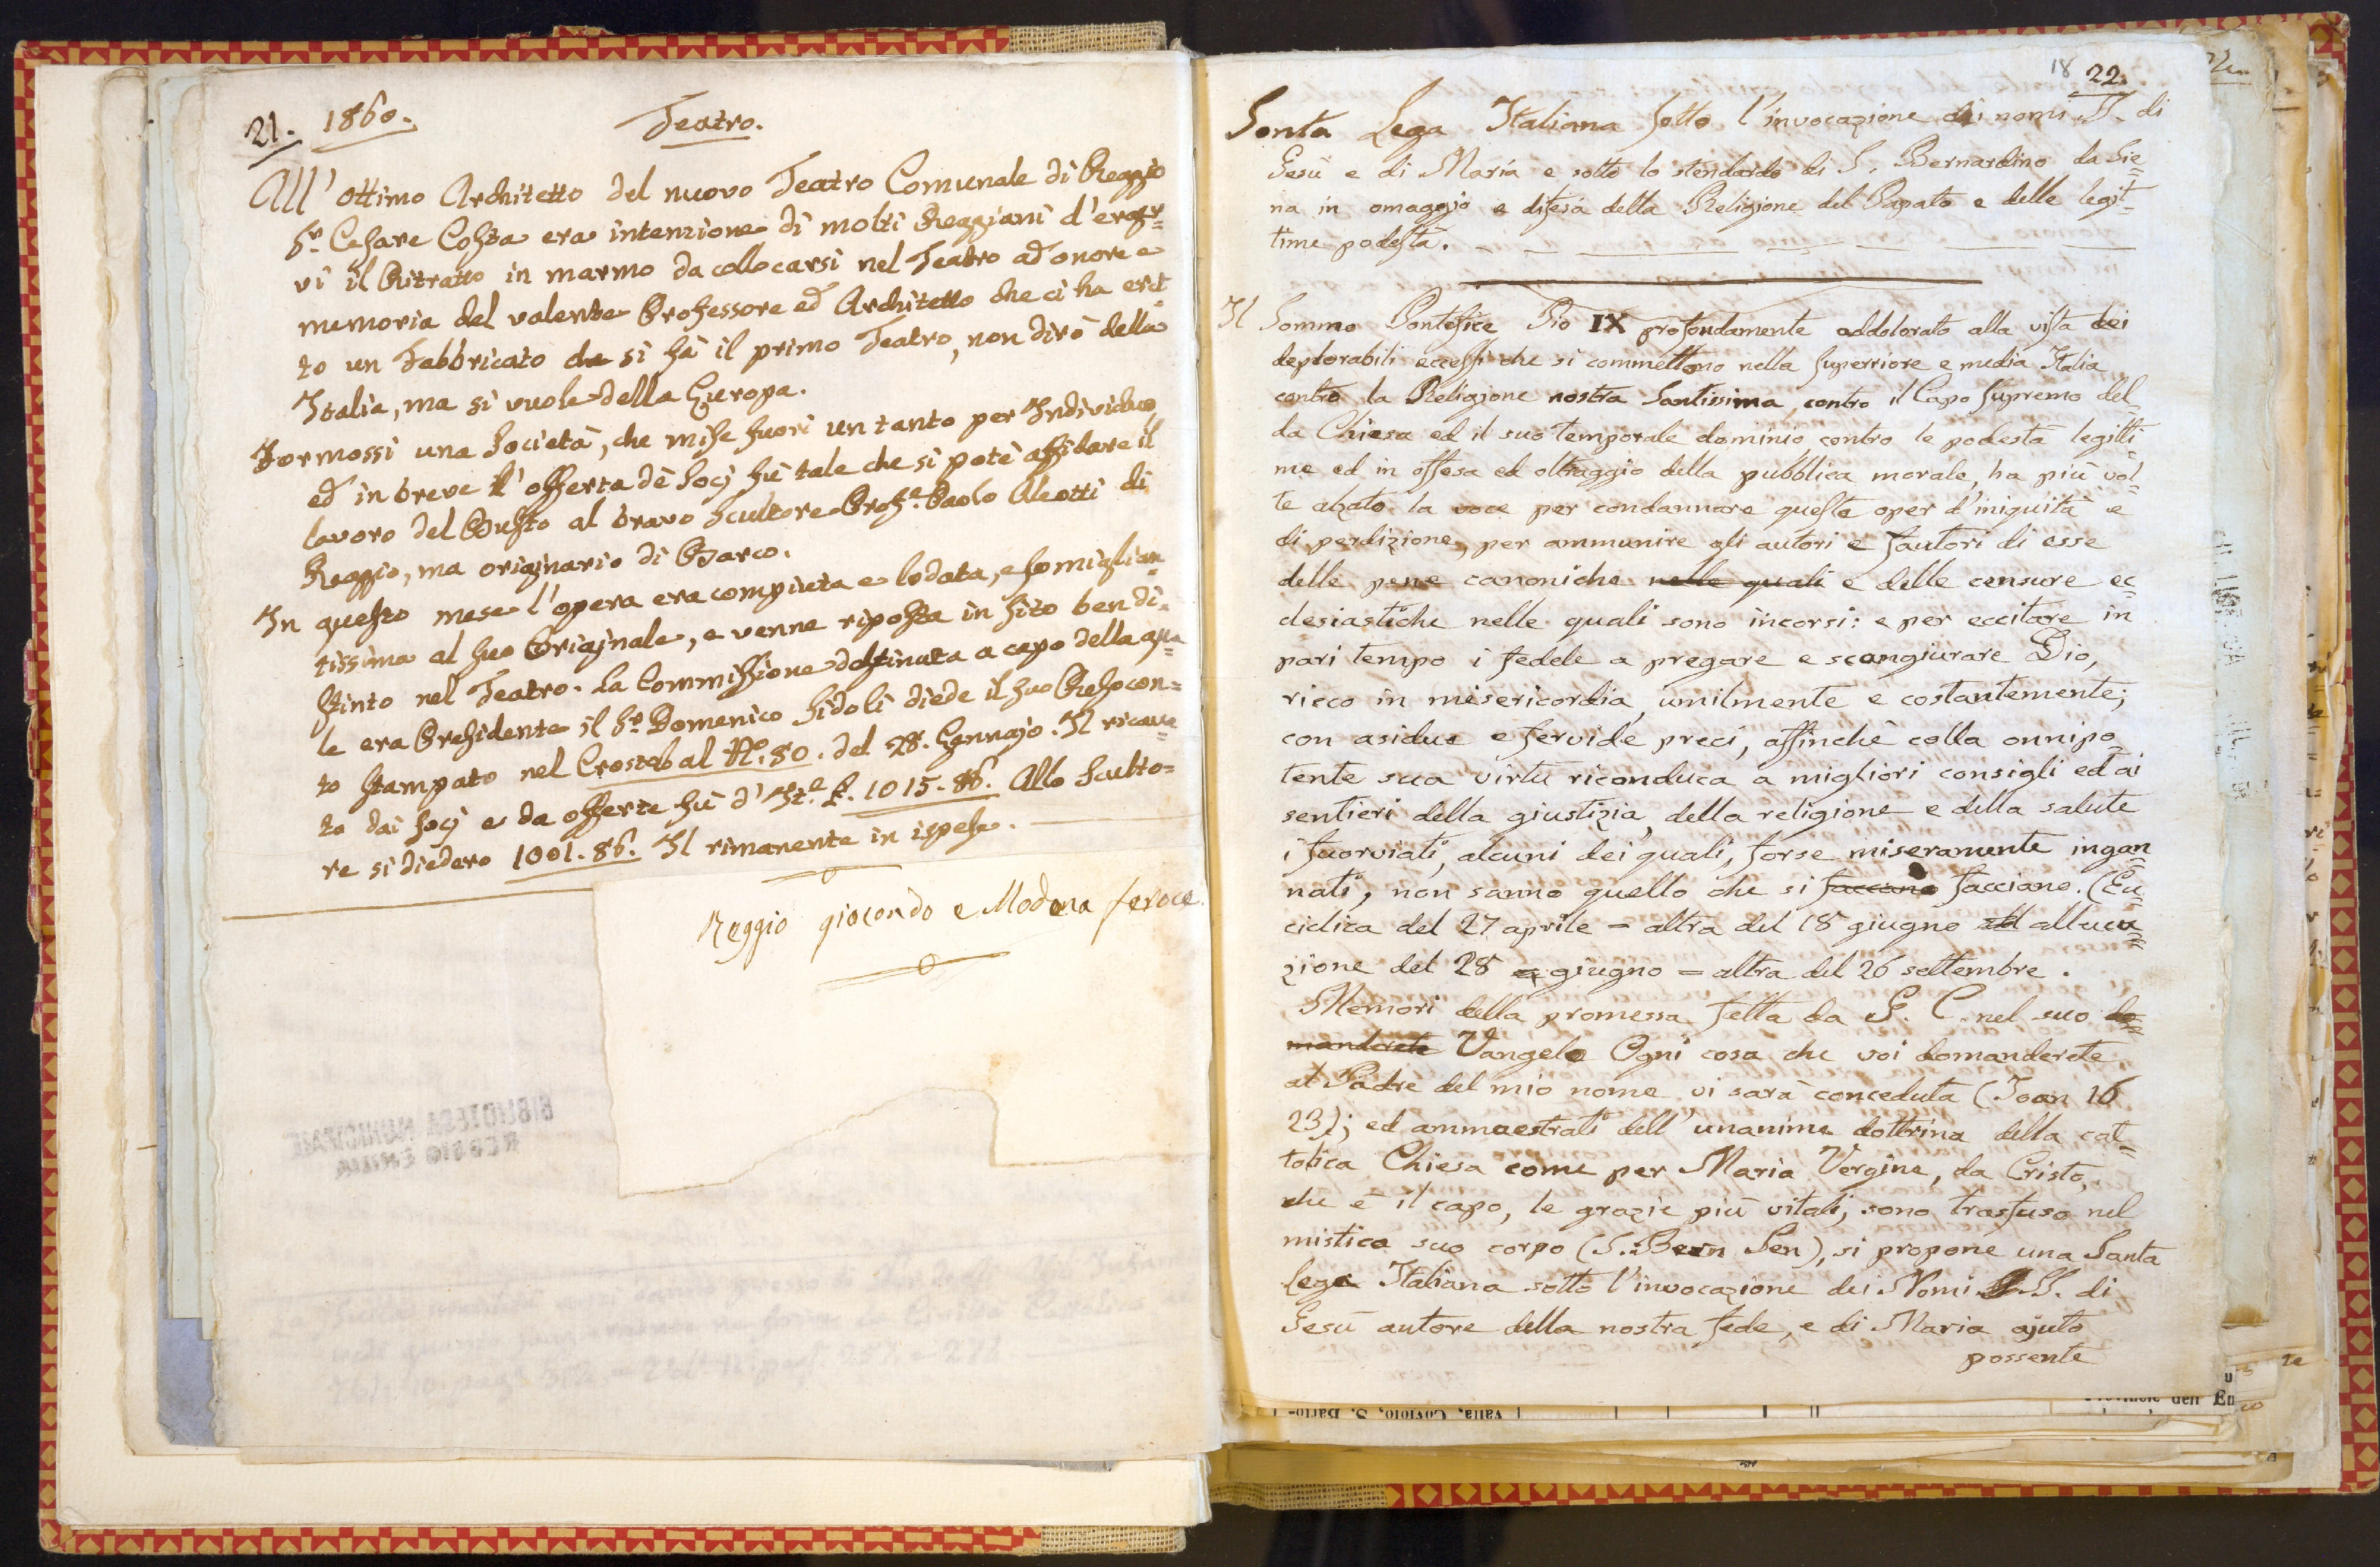 21. 1860. Teatro.
All' ottimo Architetto del nuovo Teatro Comunale di Reggio
Sr. Cesare Costa era intenzione di molti Reggiani d'erger=
vi il Ritratto in marmo da collocarsi nel Teatro ad onore e
memoria del valente Professore ed Architetto che ci ha eret
to un Fabbricato che si fà il primo Teatro, non dirò della
Italia, ma si vuole della Europa.
Formossi una Società, che mise fuori un tanto per Individuo,
ed in breve l'offerta dè Socj fù tale che si potè affidare il
lavoro del Busto al bravo Scultore Profe. Paolo Aleotti di
Reggio, ma originario di Barco.
In questo mese l'opera era compiuta e lodata, e somiglian=
tissima al suo Originale, e venne riposta in sito ben di=
stinto nel Teatro. La Commissione destinata a capo della qua=
le era Presidente il Sr. Domenico Sidoli diede il suo Resocon=
to stampato nel Crostolo al No. 80. del 28. Gennajo. Il ricava=
to dai Socj e da offerte fù d' It.e £. 1015. 86. Allo Sculto=
re si diedero 1001. 86. Il rimanente in ispese.
Reggio giocondo e Modena feroce.
BIBLIOTECA MUNICIPALE
REGGIO EMILIA
18 22.
Santa Lega Italiana sotto l'invocazione dei nomi S. di
Gesù e di Maria e sotto lo stendardo di S. Bernardino da Sie=
na in omaggio e difesa della Religione del Papato e delle legit=
time podestà.
Il Sommo Pontefice Pio IX profondamente addolorato alla vista dei
deplorabili eccessi che si commettono nella superriore e media Italia
contro la Religione nostra Santissima, contro il Capo supremo del=
la Chiesa ed il suo temporale dominio, contro le podestà legitti
me ed in offesa ed oltraggio della pubblica morale, ha più vol=
te alzato la voce per condannare queste oper d'iniquità e
di perdizione, per ammunire gli autori e fautori di esse
delle pene canoniche nelle quali e delle censure ec=
clesiastiche nelle quali sono incorsi: e per eccitare in
pari tempo i fedele a pregare e scongiurare Dio,
ricco in misericordia, umilmente e costantemente;
con asidue e fervide preci, affinchè colla onnipo=
tente sua virtù riconduca a migliori consigli ed ai
sentieri della giustizia, della religione e della salute
i fuorviati, alcuni dei quali, forse miseramente ingan=
nati, non sanno quello che si faccano facciano. (En=
ciclica del 27 aprile = altra del 18 giugno allucu=
zione del 28 giugno = altra del 26 settembre.
Memori della promessa fatta da G. C. nel suo do=
manderete Vangelo Ogni cosa che voi domanderete
al Padre del mio nome vi sarà conceduta (Joan 16
23); ed ammaestrati dell' unanime dottrina della cat=
tolica Chiesa come per Maria Vergine, da Cristo,
che è il capo, le grazie più vitali, sono trasfuso nel
mistico suo corpo (S. Bern Sen), si propone una Santa
lega Italiana sotto l'invocazione dei Nomi S. di
Gesù autore della nostra fede, e di Maria ajuto
possente